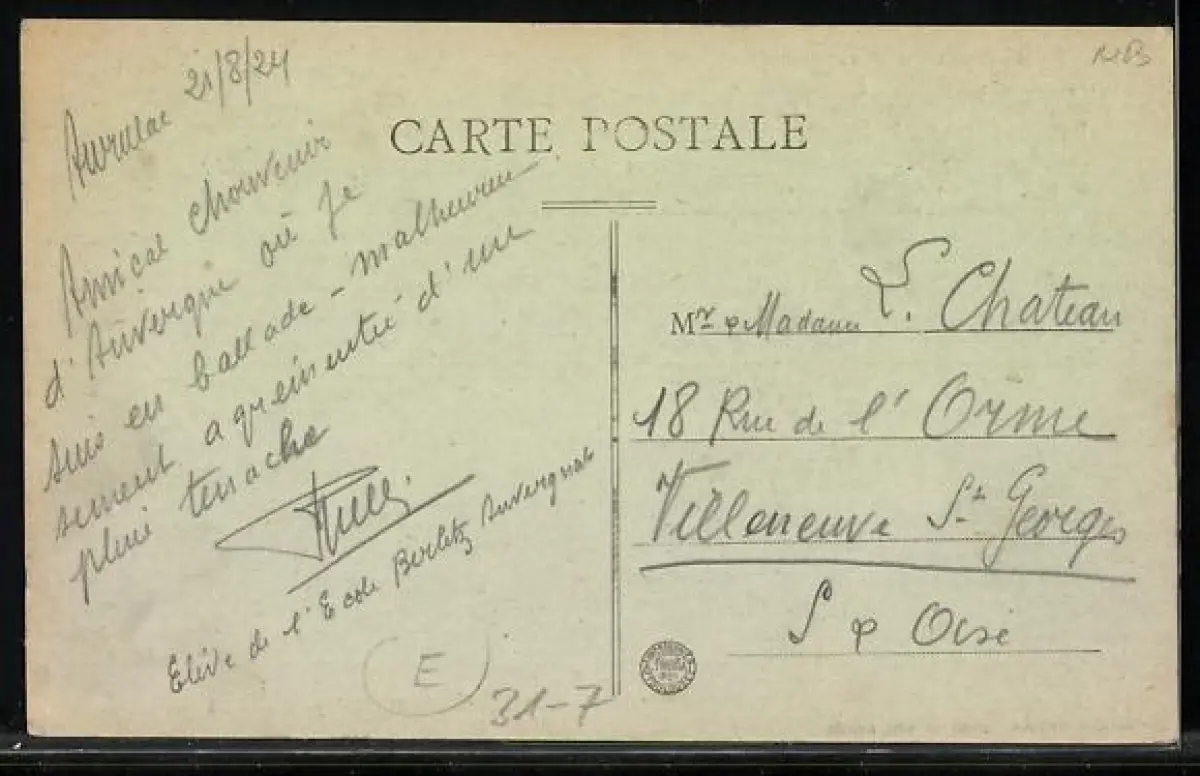 CARTE POSTALE
Aurillac 21/8/24
Amical chouvenir
d'Auvergne où je
suis en ballade - malheureu
sement agreimentée d'une
pluie tenache
Elève de l'Ecole Berlitz Auvergnat
E
31-7
Mr & Madame L. Chateau
18 Rue de l'Orme
Villeneuve St Georges
S & Oise